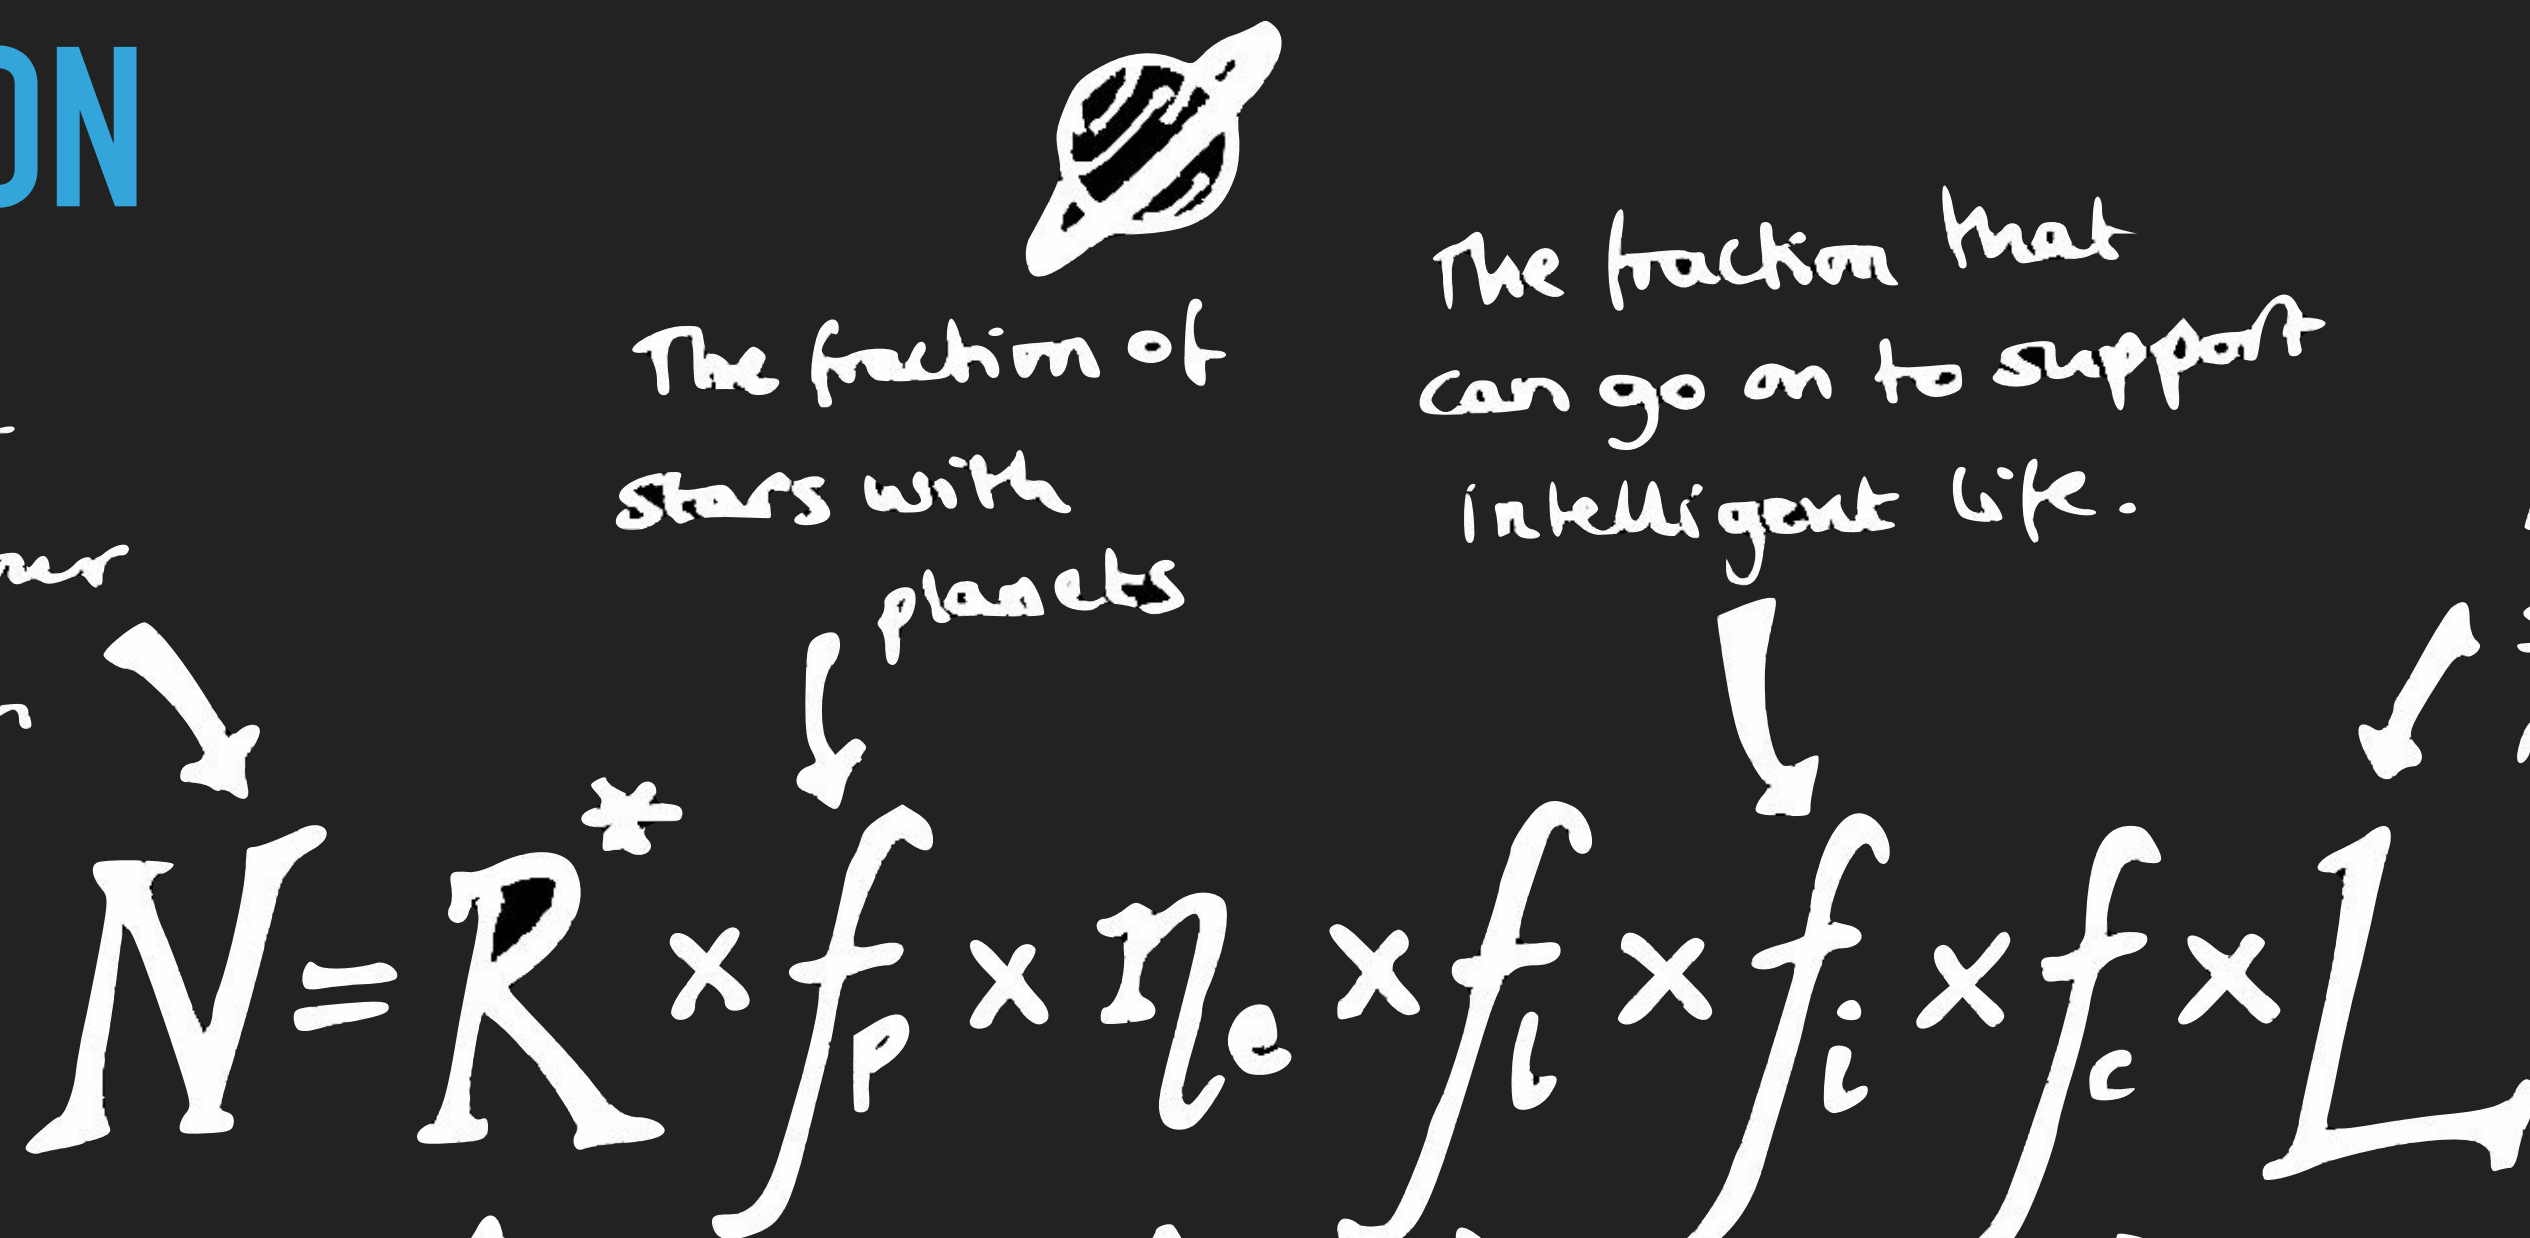 ON
The fraction of
stars with
planets
The fraction that
can go on to support
intelligent life.
N = R* × fp × ne × fl × fi × fc × L